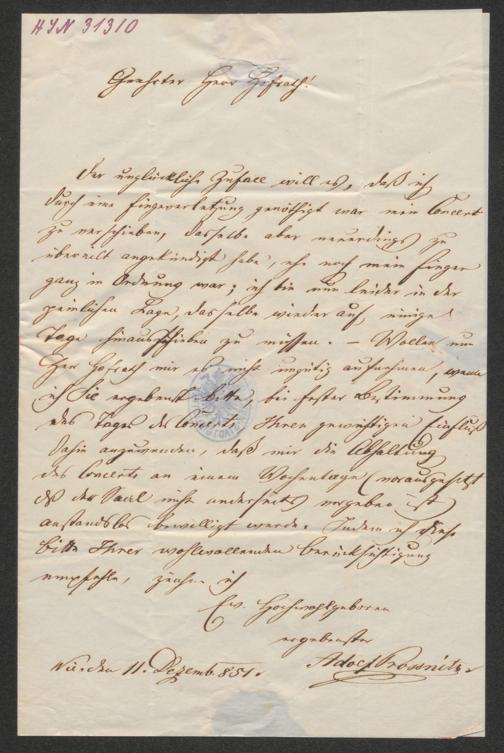 HIN 31310
Geehrter Herr Hofrath!
Der unglückliche Zufall will es, daß ich
durch eine Fingerverletzung genöthigt war mein Concert
zu verschieben, dasselbe aber neuerdings zu
übereilt angekündigt habe, ehe noch mein Finger
ganz in Ordnung war; ich bin nun leider in der
peinlichen Lage, dasselbe wieder auf einige
Tage hinausschieben zu müssen. – Wollen nun
Herr Hofrath mir es nicht ungütig aufnehmen, wenn
ich Sie ergebenst bitte, bei fester Bestimmung
des Tages des Concerts, Ihren gewichtigen Einfluß
dahin anzuwenden, daß mir die Abhaltung
des Concerts an einem Wochentage (vorausgesetzt
daß der Saal nicht anderseits vergeben ist
anstandslos bewilligt werde. Indem ich diese
Bitte Ihrer wohlwollenden Berücksichtigung
empfehle, zeichne ich
Ew. Hochwohlgeboren
ergebenster
Adolf Prosnitz
Wien den 11. Dezemb. 851.